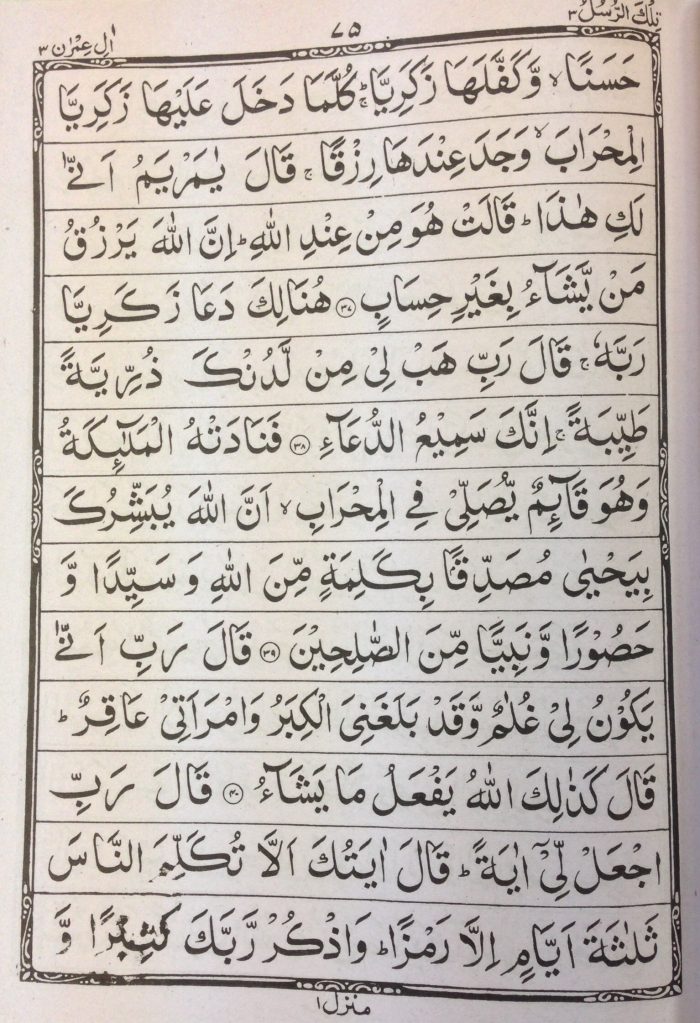 تِلْكَ الرُّسُلُ ٣
٧٥
اٰلِ عِمْرٰن ٣
حَسَنًا ۙ وَّكَفَّلَهَا زَكَرِيَّا ۚ كُلَّمَا دَخَلَ عَلَيْهَا زَكَرِيَّا
الْمِحْرَابَ ۙ وَجَدَ عِنْدَهَا رِزْقًا ۚ قَالَ يٰمَرْيَمُ اَنّٰى
لَكِ هٰذَا ؕ قَالَتْ هُوَ مِنْ عِنْدِ اللّٰهِ ؕ اِنَّ اللّٰهَ يَرْزُقُ
مَنْ يَّشَآءُ بِغَيْرِ حِسَابٍ ﴿۳۷﴾ هُنَالِكَ دَعَا زَكَرِيَّا
رَبَّهٗ ۚ قَالَ رَبِّ هَبْ لِىْ مِنْ لَّدُنْكَ ذُرِّيَّةً
طَيِّبَةً ۚ اِنَّكَ سَمِيْعُ الدُّعَآءِ ﴿۳۸﴾ فَنَادَتْهُ الْمَلٰٓئِكَةُ
وَهُوَ قَآئِمٌ يُّصَلِّىْ فِى الْمِحْرَابِ ۙ اَنَّ اللّٰهَ يُبَشِّرُكَ
بِيَحْيٰى مُصَدِّقًۢا بِكَلِمَةٍ مِّنَ اللّٰهِ وَسَيِّدًا وَّ
حَصُوْرًا وَّنَبِيًّا مِّنَ الصّٰلِحِيْنَ ﴿۳۹﴾ قَالَ رَبِّ اَنّٰى
يَكُوْنُ لِىْ غُلٰمٌ وَّقَدْ بَلَغَنِىَ الْكِبَرُ وَامْرَاَتِىْ عَاقِرٌ ؕ
قَالَ كَذٰلِكَ اللّٰهُ يَفْعَلُ مَا يَشَآءُ ﴿۴۰﴾ قَالَ رَبِّ
اجْعَلْ لِّىْۤ اٰيَةً ؕ قَالَ اٰيَتُكَ اَلَّا تُكَلِّمَ النَّاسَ
ثَلٰثَةَ اَيَّامٍ اِلَّا رَمْزًا ؕ وَاذْكُرْ رَّبَّكَ كَثِيْرًا وَّ
منزل ١